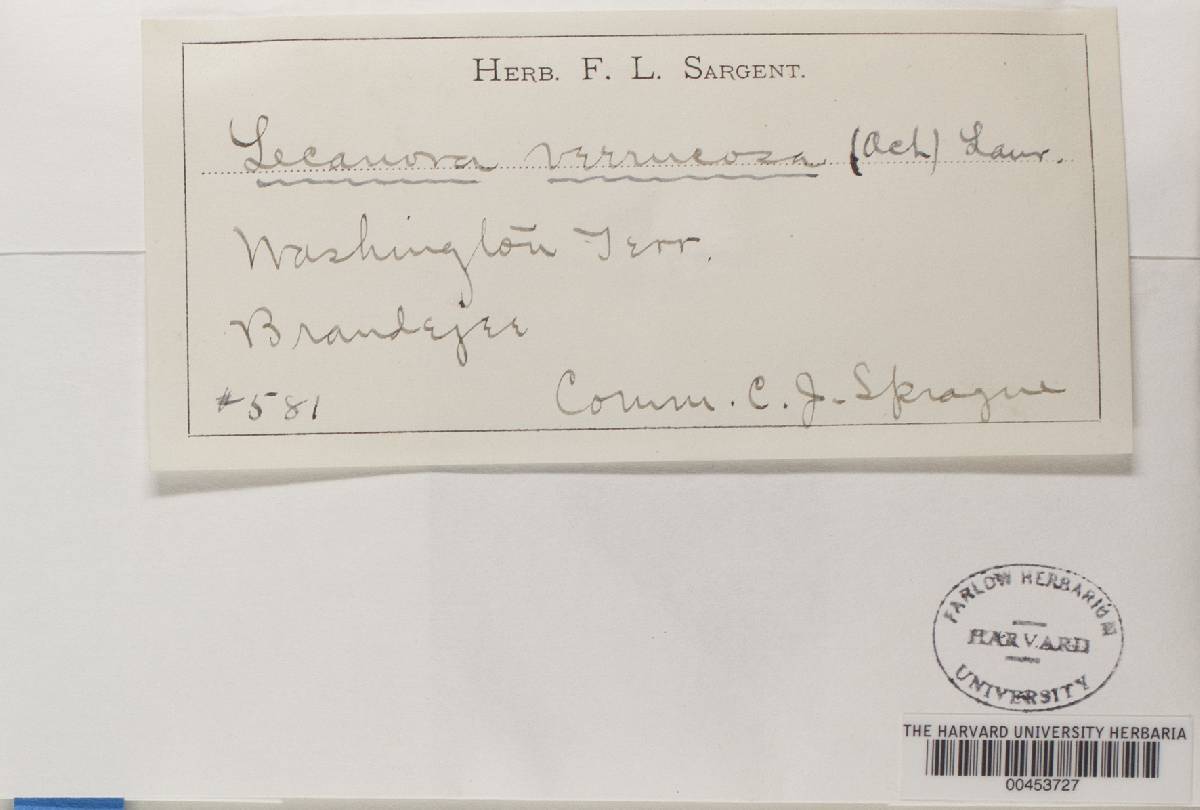 HERB. F. L. SARGENT.
Lecanora verrucosa (Ach) Laur.
Washington Terr.
Brandejee
#581 Comm. C. J. Sprague
FARLOW HERBARIUM
HARVARD
UNIVERSITY
THE HARVARD UNIVERSITY HERBARIA
00453727